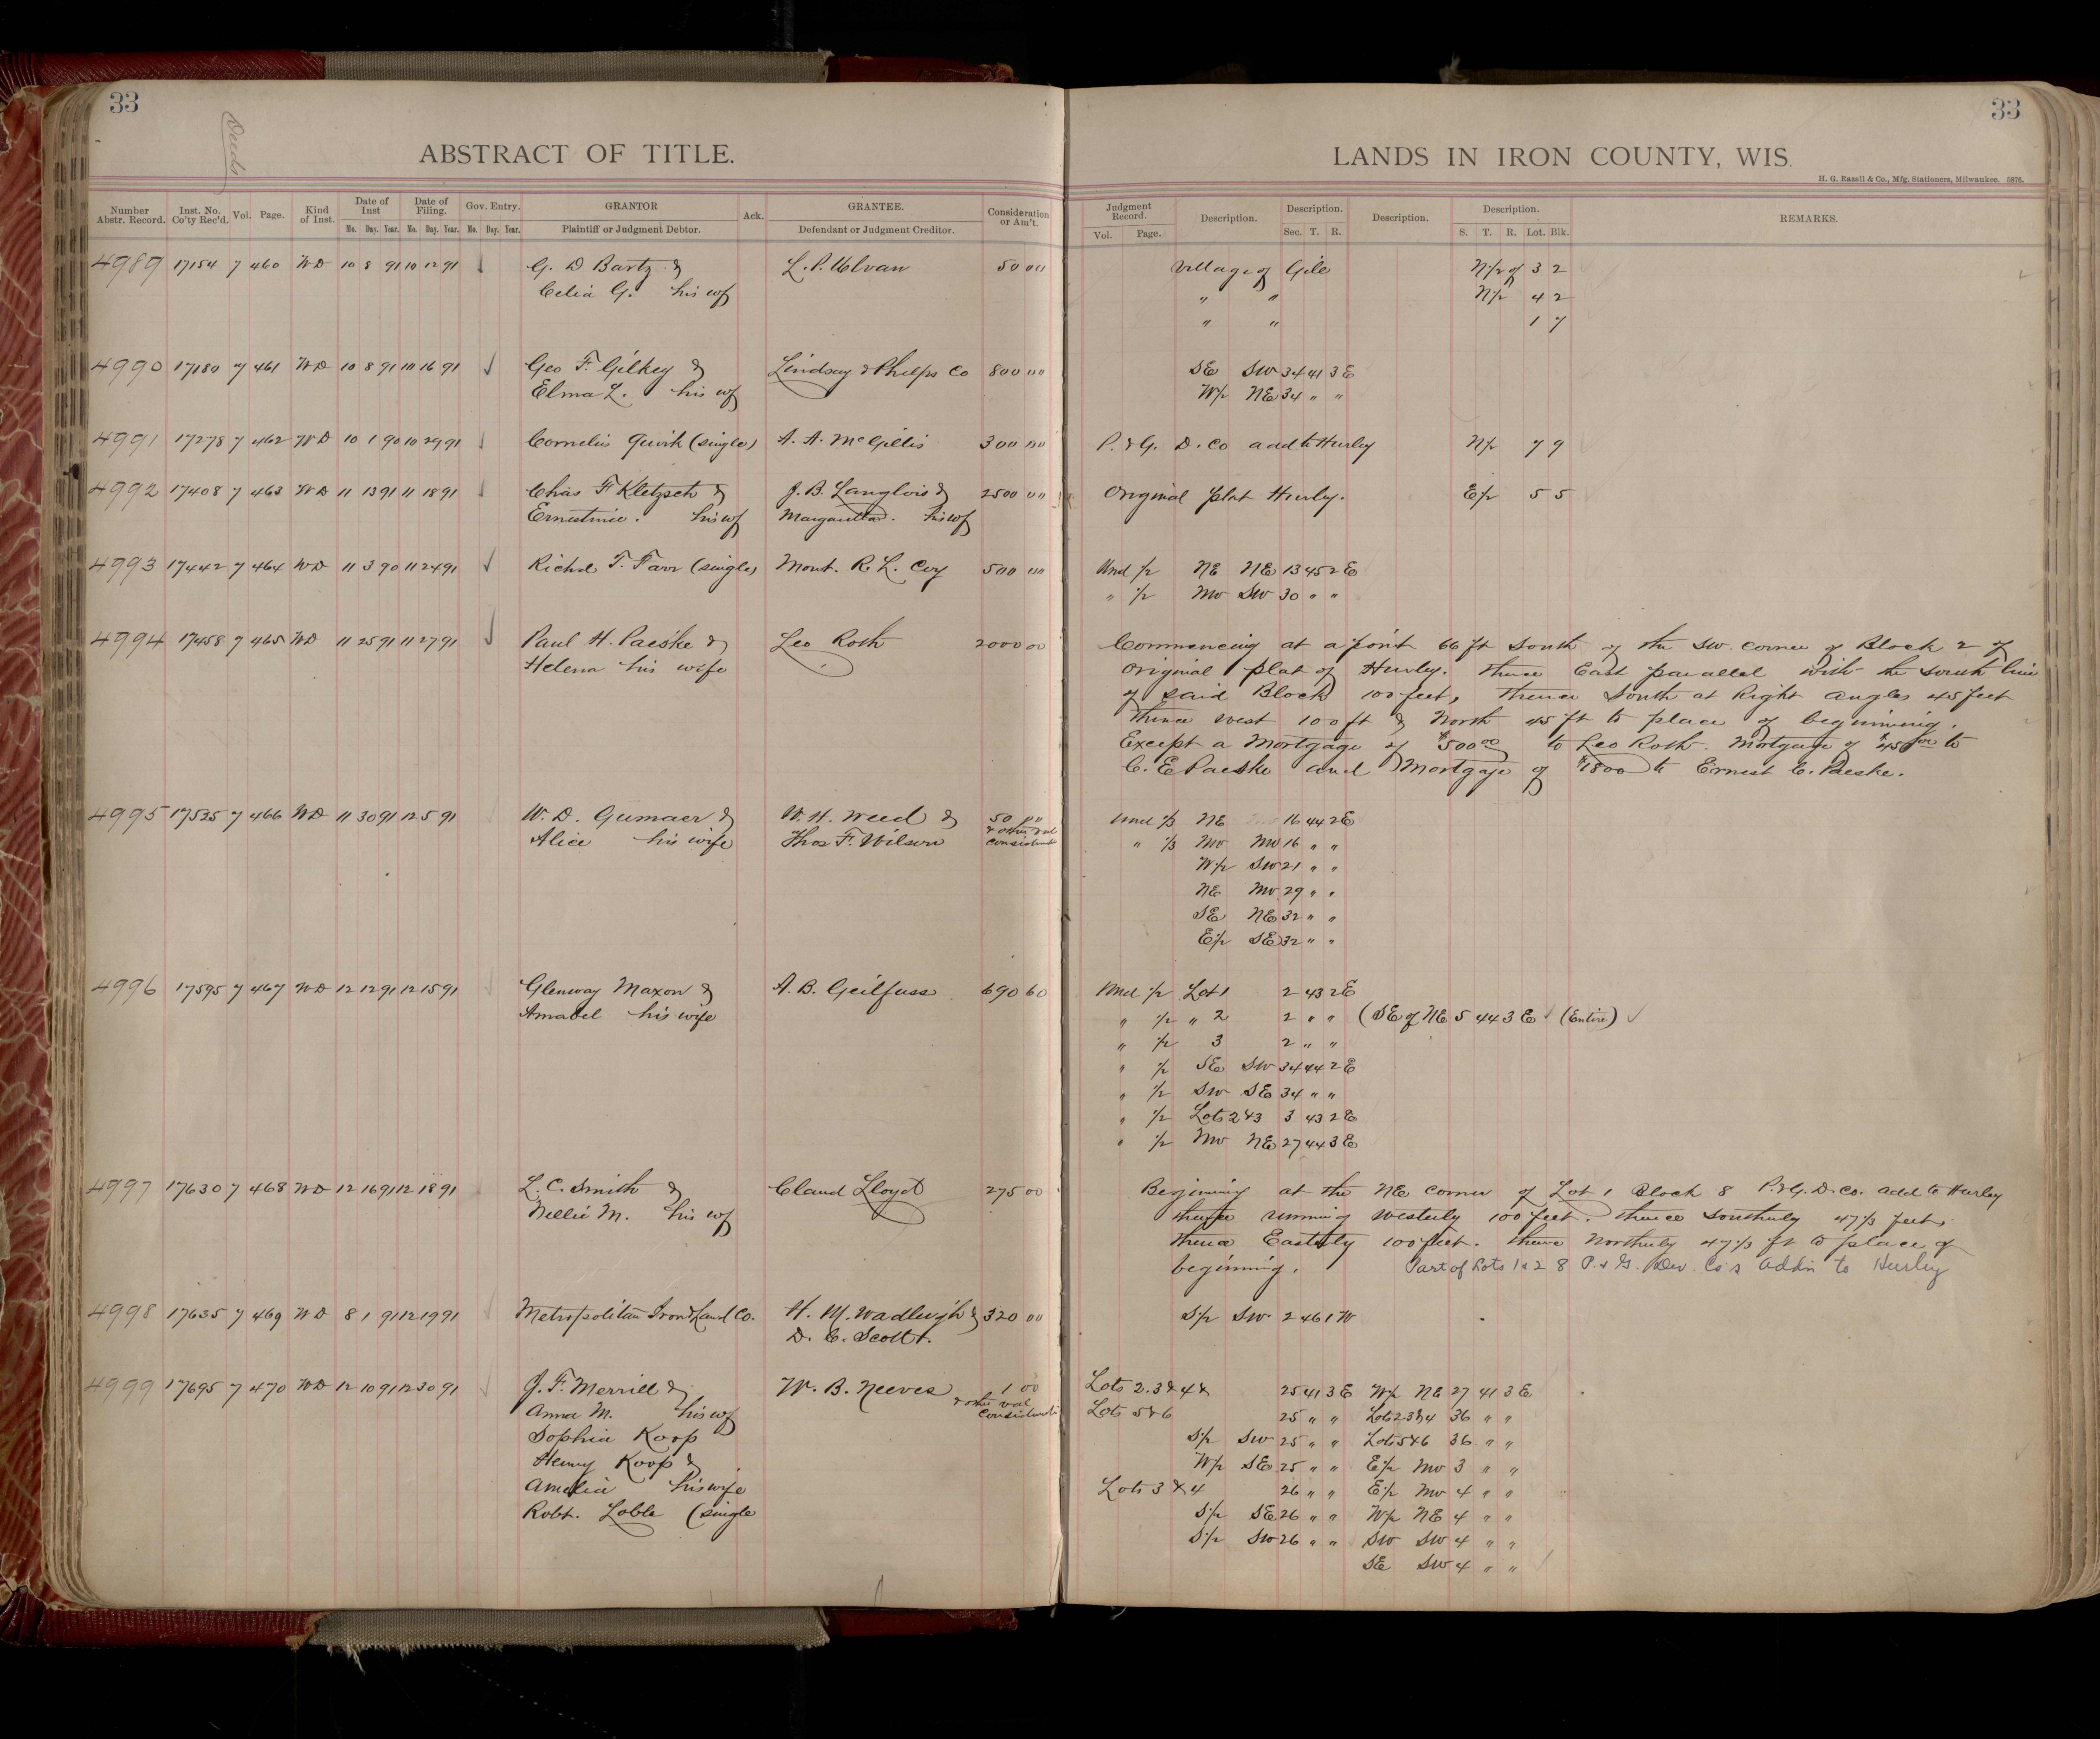 33
Deeds
ABSTRACT OF TITLE.
Number Abstr. Record. Inst. No. Co'ty Rec'd. Vol. Page. Kind of Inst. Date of Inst Mo. Day. Year. Date of Filing. Mo. Day. Year. Gov. Entry. Mo. Day. Year. GRANTOR Plaintiff or Judgment Debtor. Ack. GRANTEE. Defendant or Judgment Creditor. Consideration or Am't.
4989 17154 7 460 WD 10 8 91 10 12 91 G. D Bartz & L. P. Ulvan 50 00
Celia G. his wf
4990 17180 7 461 WD 10 8 91 10 16 91 Geo F. Gilkey & Lindsay & Phelps Co 800 00
Elma L. his wf
4991 17278 7 462 WD 10 1 90 10 29 91 Cornelius Quirk (single) A. A. McGillis 300 00
4992 17408 7 463 WD 11 13 91 11 18 91 Chas F Kletzsch & J. B. Langlois & 2500 00
Ernestine. his wf Margaretta. his wf
4993 17442 7 464 WD 11 3 90 11 24 91 Richd T. Farr (single) Mont. R. L. Coy 500 00
4994 17458 7 465 WD 11 25 91 11 27 91 Paul H. Paeske & Leo Roth 2000 00
Helena his wife
4995 17535 7 466 WD 11 30 91 12 5 91 W. D. Gumaer & W. H. Weed & 50 00
& other val
Alice his wife Thos F. Wilson
4996 17595 7 467 WD 12 12 91 12 15 91 Glenway Maxon & A. B. Geilfuss 690 60
Amabel his wife
4997 17630 7 468 WD 12 16 91 12 18 91 L. C. Smith & Claud Lloyd 275 00
Nellie M. his wf
4998 17635 7 469 WD 8 1 91 12 19 91 Metropolitan Iron & Land Co. H. M. Wadleigh & 320 00
D. C. Scott.
4999 17695 7 470 WD 12 10 91 12 30 91 J. F. Merrill & W. B. Neeves 1 00
& other val
Anna M. his wf
Sophia Koop
Henry Koop &
Amelia his wife
Robt. Loble (single
33
LANDS IN IRON COUNTY, WIS.
H. G. Razall & Co., Mfg. Stationers, Milwaukee. 5876.
Judgment Record. Vol. Page. Description. Description. Sec. T. R. Description. Description. S. T. R. Lot. Blk. REMARKS.
Village of Gile N½ of 3 2
" " N½ 4 2
" " 1 7
SE SW 34 41 3E
W½ NE 34 " "
P. & G. D. Co add to Hurley N½ 7 9
Original plat Hurley. E½ 5 5
Und ½ NE NE 13 45 2E
" ½ NW SW 30 " "
Commencing at a point 66 ft South of the SW. corner of Block 2 of
Original plat of Hurley. thence East parallel with the South line
of said Block 100 feet, thence South at Right angles 45 feet
thence west 100 ft & North 45 ft to place of beginning.
Except a Mortgage of $500 00 to Leo Roth. Mortgage of $45 00 to
C. E Paeske and Mortgage of $1800 to Ernest C. Paeske.
Und ⅓ NE 16 44 2E
" ⅓ NW NW 16 " "
W½ SW 21 " "
NE NW 29 " "
SE NE 32 " "
E½ SE 32 " "
Und ½ Lot 1 2 43 2E
" ½ " 2 2 " " (SE of NE 5 44 3 E ✓ (Entire) ✓
" ½ 3 2 " "
" ½ SE SW 34 44 2E
" ½ SW SE 34 " "
" ½ Lots 2 & 3 3 43 2E
" ½ NW NE 27 44 3E
Beginning at the NE corner of Lot 1 Block 8 P. & G. D. Co. add to Hurley
thence running Westerly 100 feet. thence Southerly 47⅓ feet,
thence Easterly 100 feet. thence Northerly 47⅓ ft to place of
beginning. Part of Lots 1 & 2 8 P. & G. Dev. Co's Addn to Hurley
S½ SW 2 46 1W
Lots 2. 3 & 4 & 25 41 3E W½ NE 27 41 3E
Lots 5 & 6 25 " " Lots 2 3 & 4 36 " "
S½ SW 25 " " Lots 5 & 6 36 " "
W½ SE 25 " " E½ NW 3 " "
Lots 3 & 4 26 " " E½ NW 4 " "
S½ SE 26 " " W½ NE 4 " "
S½ SW 26 " " SW SW 4 " "
SE SW 4 " "